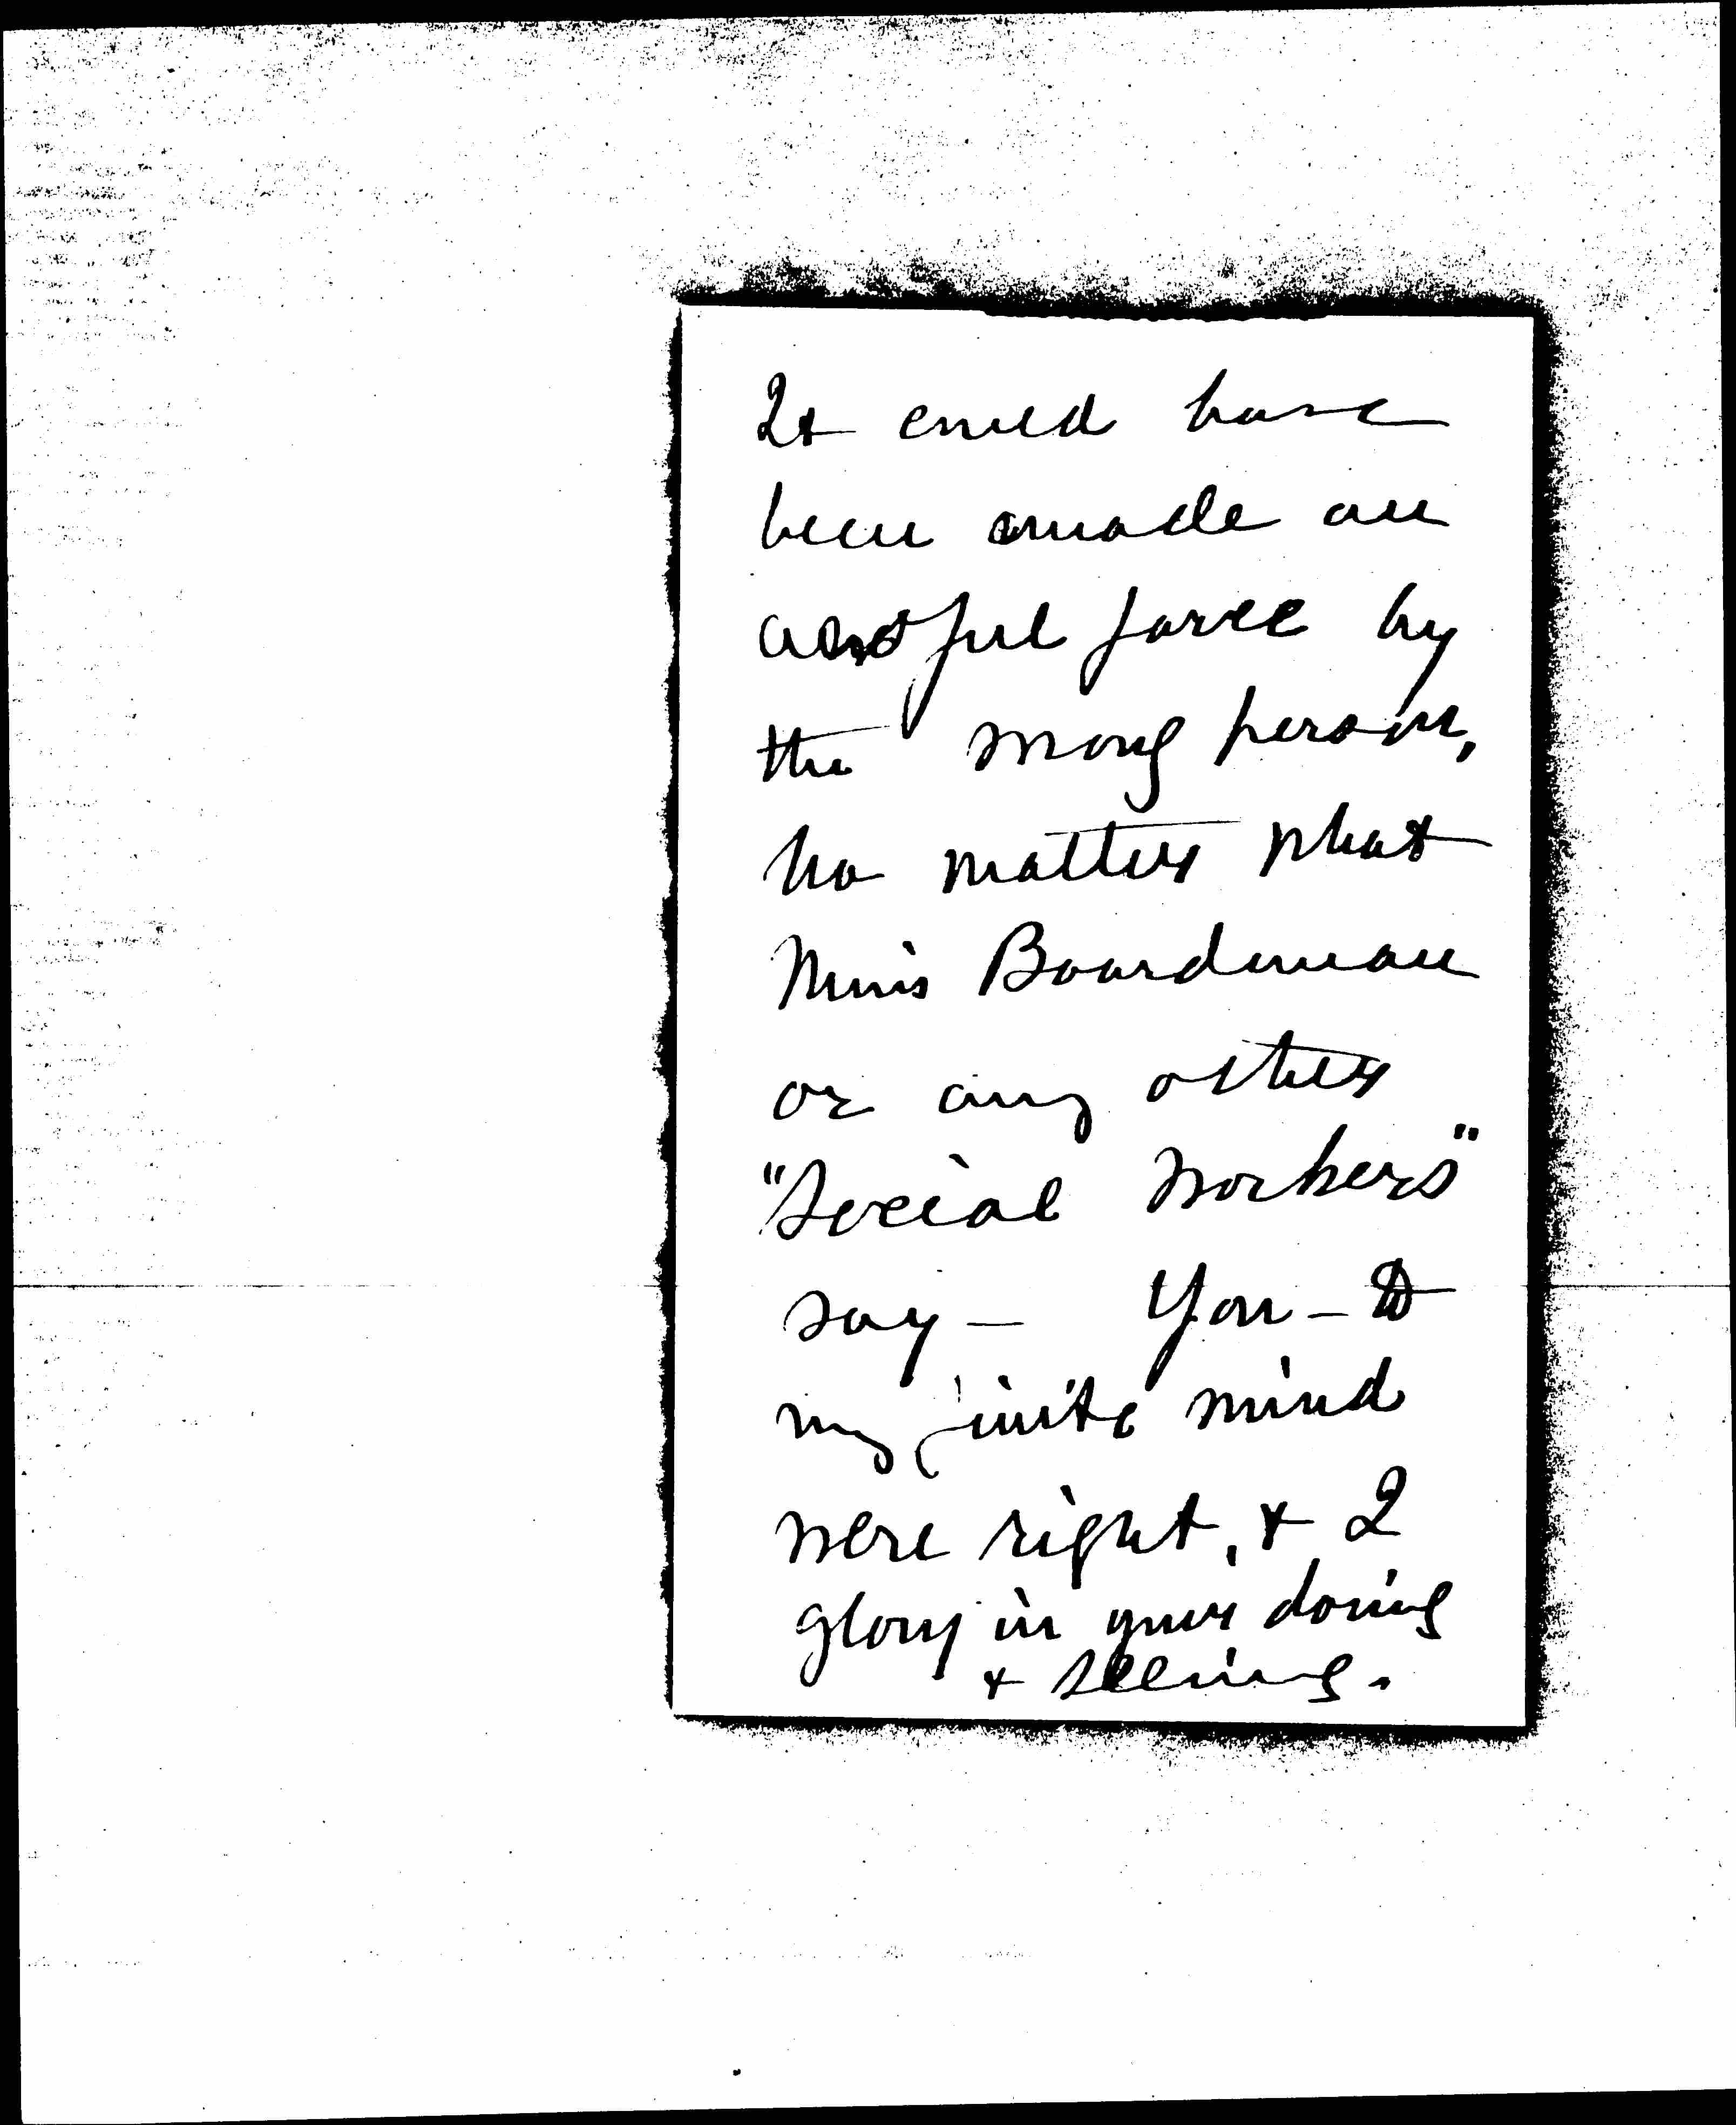 It could have
been made an
awful farce by
the wrong person,
no matter what
Miss Boardman
or any other
"Social Workers"
say — You – to
my finite mind
were right, & I
glory in your doing
& seeing.